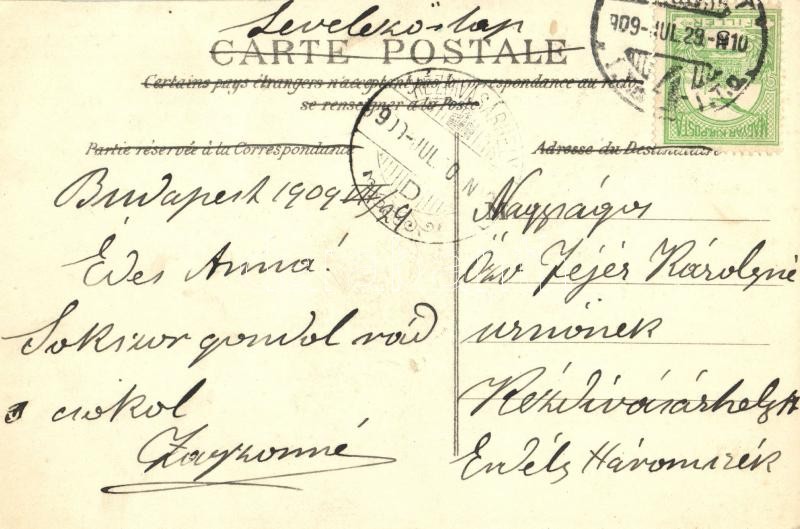 Levelezőlap
CARTE POSTALE
Certains pays étrangers n'acceptant pas la correspondance au recto
se renseigner à la Poste
Partie réservée à la Correspondance
Adresse du Destinataire
909 JUL. 29
FILLÉR
MAGYAR KIR. POSTA
JUL.
Budapest 1909 VII/29
Édes Anna!
Sokszor gondol rád
s csókol
Zayzonné
Nagyságos
Özv Fejér Károlyné
urnőnek
Kézdivásárhelyt
Erdély Háromszék